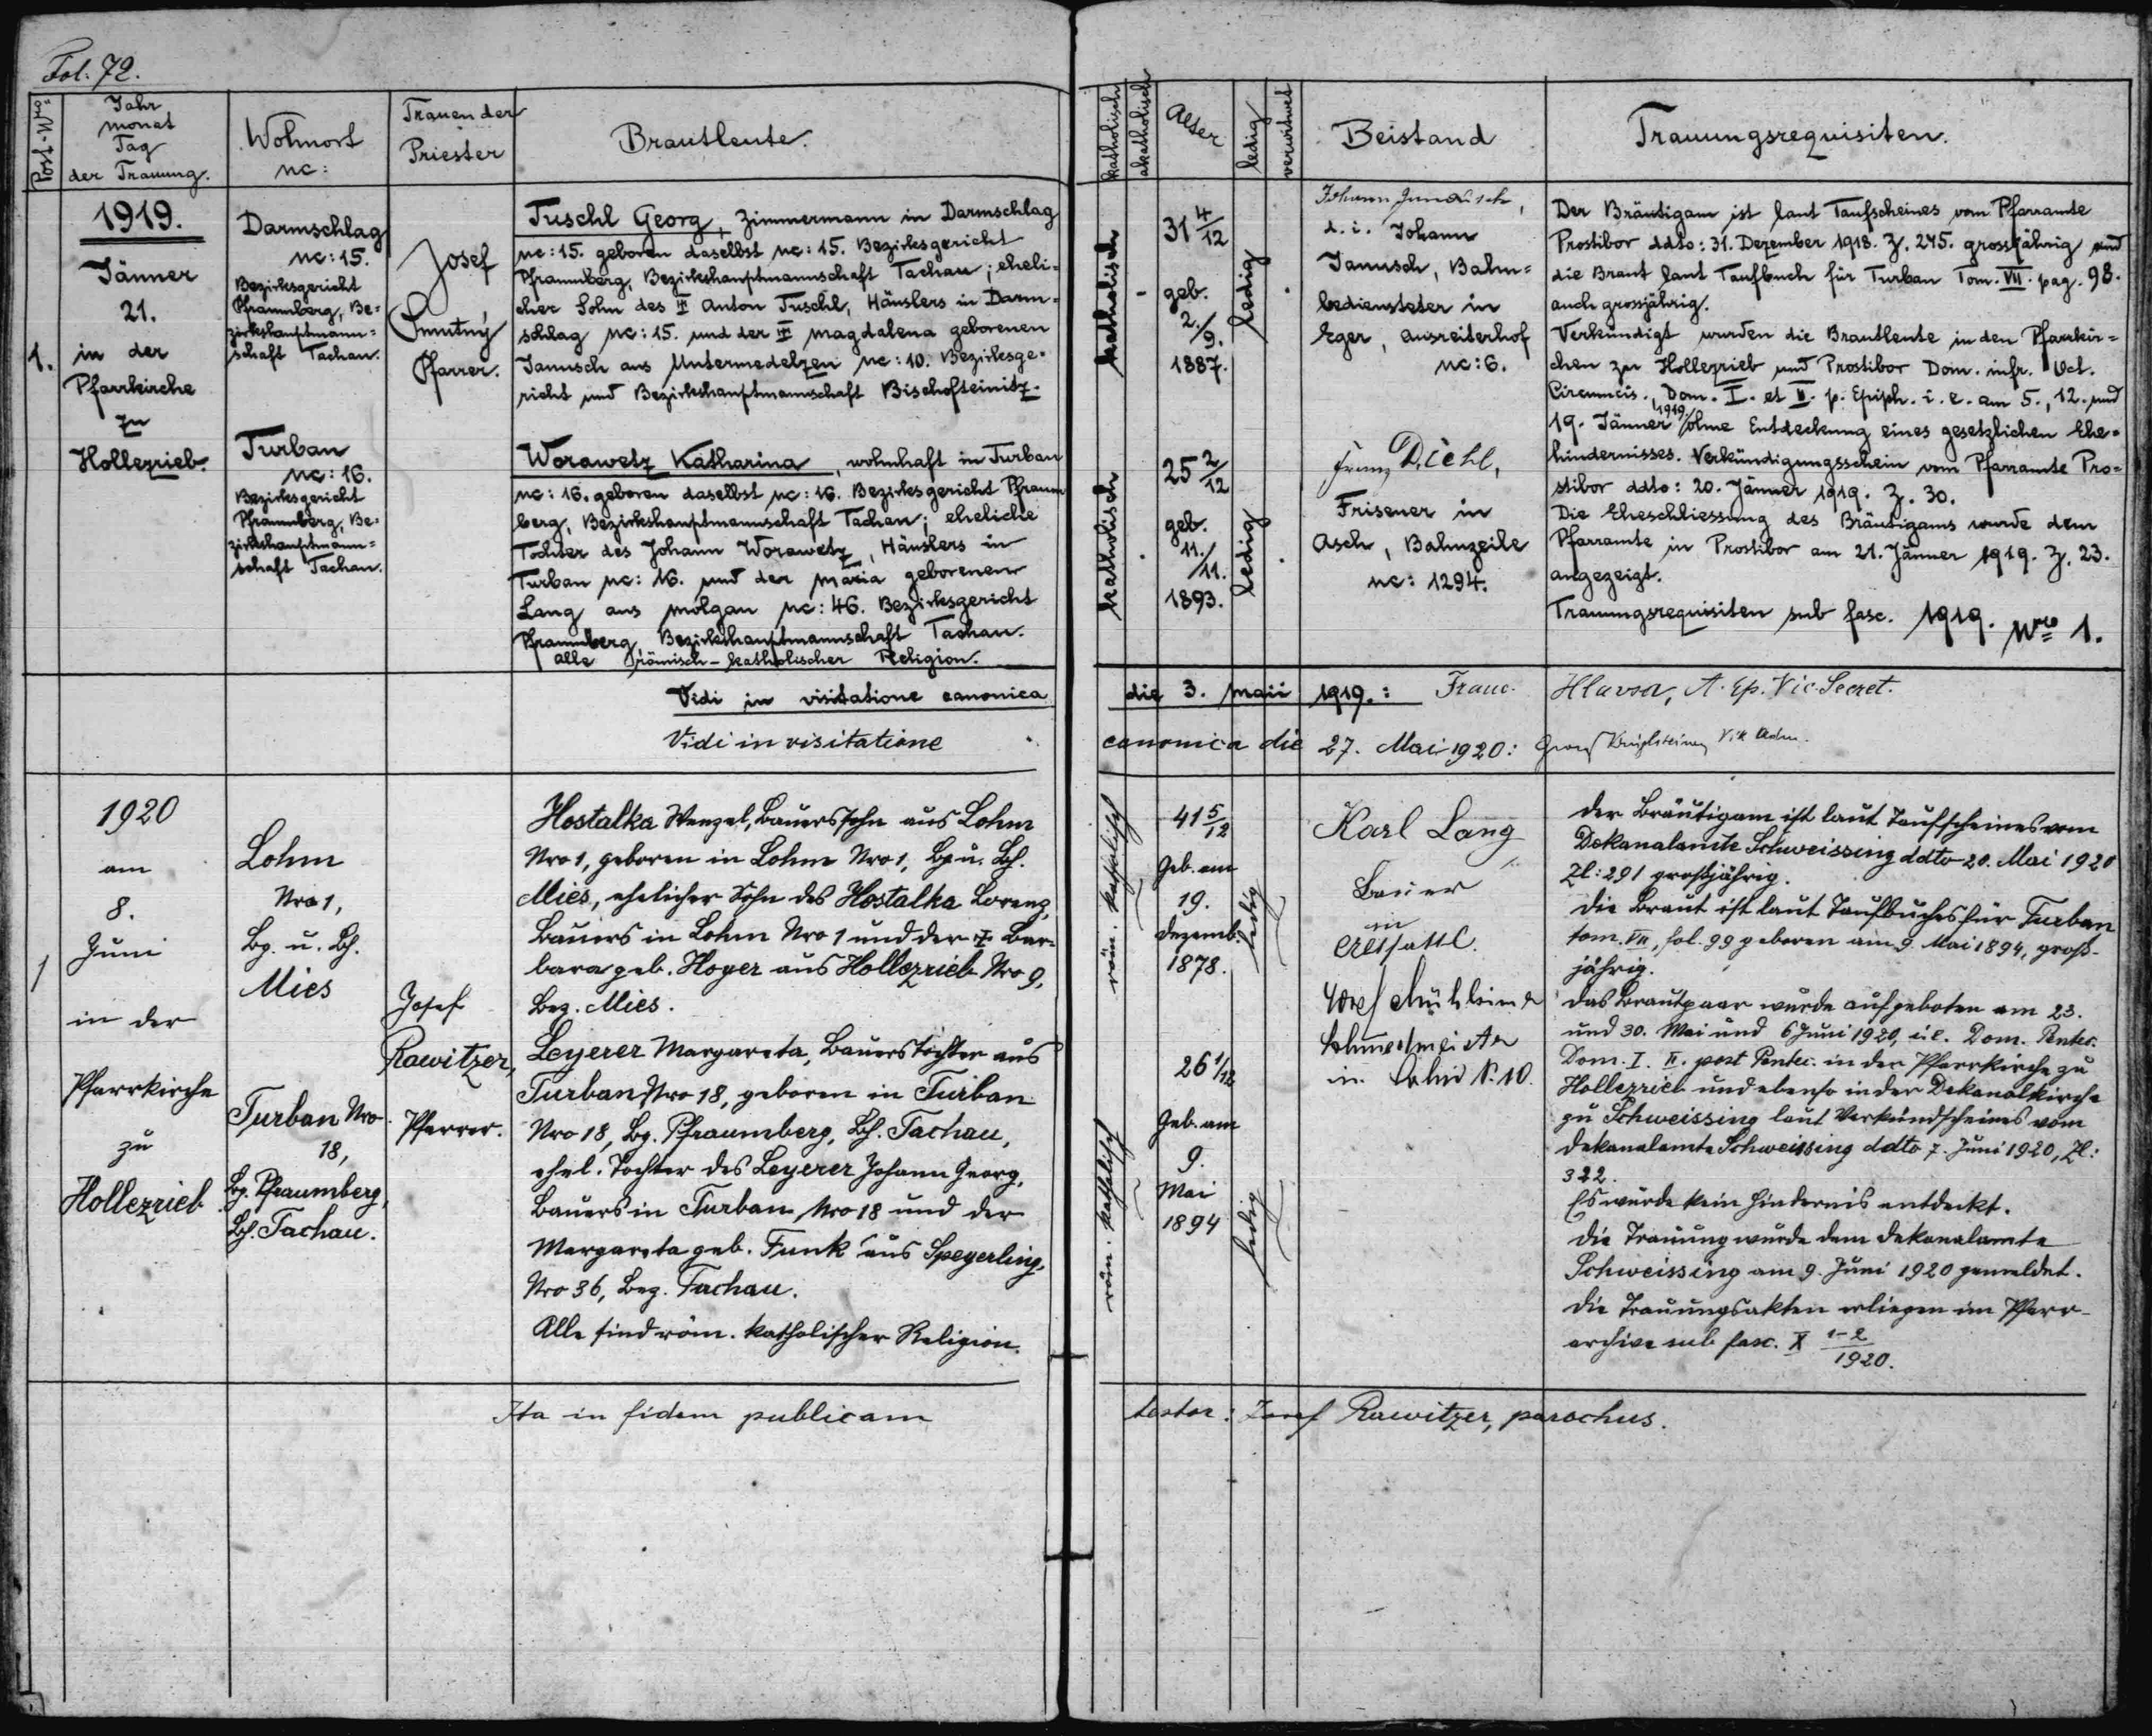 Fol. 72.
Post-Nro:
Jahr
Monat
Tag
der Trauung.
Wohnort
nc:
Trauender
Priester
Brautleute.
katholisch
akatholisch
Alter
ledig
verwitwet
Beistand
Trauungsrequisiten.
1.
1919.
Jänner
21.
in der
Pfarrkirche
zu
Hollezrieb.
Darmschlag
nc: 15.
Bezirksgericht
Pfraumberg, Be=
zirkshauptmann=
schaft Tachau.
Turban
nc: 16.
Bezirksgericht
Pfraumberg, Be=
zirkshauptmann=
schaft Tachau.
Josef
Smutný
Pfarrer.
Tuschl Georg, Zimmermann in Darmschlag
nc: 15. geboren daselbst nc: 15. Bezirksgericht
Pfraumberg, Bezirkshauptmannschaft Tachau; eheli=
cher Sohn des Anton Tuschl, Häuslers in Darm=
schlag nc: 15. und der Magdalena geborenen
Janusch aus Untermedelzen nc: 10. Bezirksge=
richt und Bezirkshauptmannschaft Bischofteinitz.
Worawetz Katharina, wohnhaft in Turban
nc: 16. geboren daselbst nc: 16. Bezirksgericht Pfraum
berg, Bezirkshauptmannschaft Tachau; eheliche
Tochter des Johann Worawetz, Häuslers in
Turban nc: 16. und der Maria geborenen
Lang aus Molgau nc: 46. Bezirksgericht
Pfraumberg, Bezirkshauptmannschaft Tachau.
Alle römisch-katholischer Religion.
katholisch
-
31 4/12
geb.
2./
9.
1887.
ledig
katholisch
25 2/12
geb.
11./
11.
1893.
ledig
Johann Janusch,
d. i. Johann
Janusch, Bahn=
bediensteter in
Eger, Ausreiterhof
nc: 6.
Franz Diehl,
Friseuer in
Asch, Bahnzeile
nc: 1294.
Der Bräutigam ist laut Taufscheines vom Pfarramte
Prostibor ddto: 31. Dezember 1918. Z. 245. grossjährig und
die Braut laut Taufbuch für Turban Tom. VII. pag. 98.
auch grossjährig.
Verkündigt wurden die Brautleute in den Pfarrkir=
chen zu Hollezrieb und Prostibor Dom. infr. Oct.
Circumcis., Dom. I. et II. p. Epiph. i. e. am 5., 12. und
19. Jänner 1919 ohne Entdeckung eines gesetzlichen Ehe=
hindernisses. Verkündigungsschein vom Pfarramte Pro=
stibor ddto: 20. Jänner 1919. Z. 30.
Die Eheschliessung des Bräutigams wurde dem
Pfarramte in Prostibor am 21. Jänner 1919. Z. 23.
angezeigt.
Trauungsrequisiten sub fasc. 1919. Nro 1.
Vidi in visitatione canonica die 3. Maii 1919.: Franc. Hlavsa, A. Ep. Vic. Secret.
Vidi in visitatione canonica die 27. Mai 1920: Vik Adm.
1
1920
am
8.
Juni
in der
Pfarrkirche
zu
Hollezrieb
Lohm
Nro 1,
Bg. u. Bh.
Mies
Turban Nro
18,
Bg. Pfraumberg,
Bh. Tachau.
Josef
Rawitzer,
Pfarrer.
Hostalka Wenzel, Bauerssohn aus Lohm
Nro 1, geboren in Lohm Nro 1, Bg u. Bh.
Mies, ehelicher Sohn des Hostalka Lorenz,
Bauers in Lohm Nro 1 und der Bar-
bara geb. Hoyer aus Hollezrieb Nro 9,
Bez. Mies.
Leyerer Margareta, Bauerstochter aus
Turban Nro 18, geboren in Turban
Nro 18, Bg. Pfraumberg, Bh. Tachau,
ehel. Tochter des Leyerer Johann Georg,
Bauers in Turban Nro 18 und der
Margareta geb. Funk aus Speyerling,
Nro 36, Bez. Tachau.
Alle sind röm. katholischer Religion.
röm. katholisch
41 5/12
Geb. am
19.
Dezemb.
1878.
ledig
röm. katholisch
26 1/12
Geb. am
9.
Mai
1894
ledig
Karl Lang
Bauer
in
Altsattl.
Josef
Schmiedmeister
in Lohm No. 10.
Der Bräutigam ist laut Taufscheines vom
Dekanalamte Schweissing ddto 20. Mai 1920
Zl: 291 großjährig.
Die Braut ist laut Taufbuches für Turban
tom. VII, fol. 99 geboren am 9. Mai 1894, groß-
jährig.
Das Brautpaar wurde aufgeboten am 23.
und 30. Mai und 6 Juni 1920, i. e. Dom. Pentec.
Dom. I. II. post Pentec. in der Pfarrkirche zu
Hollezrieb und ebenso in der Dekanalkirche
zu Schweissing laut Verkündscheines vom
Dekanalamte Schweissing ddto 7. Juni 1920, Zl:
322.
Es wurde kein Hindernis entdeckt.
Die Trauung wurde dem Dekanalamte
Schweissing am 9. Juni 1920 gemeldet.
Die Trauungsakten erliegen im Pfarr-
archive sub fasc. X 1-2/1920.
Ita in fidem publicam testor: Josef Rawitzer, parochus.